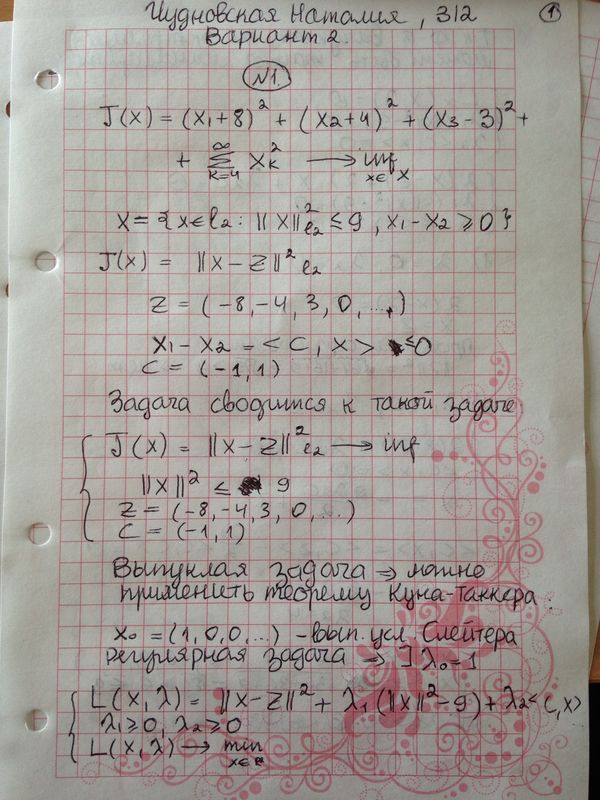 Чудновская Наталия, 312 ①
Вариант 2.
№1.
J(x) = (x₁+8)² + (x₂+4)² + (x₃-3)² +
+ ∑_{k=4}^{∞} x_k² → inf_{x∈X}
X = {x∈l₂: ||x||²_{l₂} ≤ 9, x₁-x₂ ≥ 0}
J(x) = ||x-z||²_{l₂}
z = (-8, -4, 3, 0, ...,)
x₁-x₂ = <c, x> ≤0
c = (-1, 1)
Задача сводится к такой задаче
J(x) = ||x-z||²_{l₂} → inf
||x||² ≤ 9
z = (-8, -4, 3, 0, ...)
c = (-1, 1)
Выпуклая задача ⇒ можно
применить теорему Куна-Таккера
x₀ = (1, 0, 0, ...) - вып. усл. Слейтера
регулярная задача ⇒ ∃ λ₀=1
L(x, λ) = ||x-z||² + λ₁(||x||²-9) + λ₂<c, x>
λ₁≥0, λ₂≥0
L(x, λ) → min